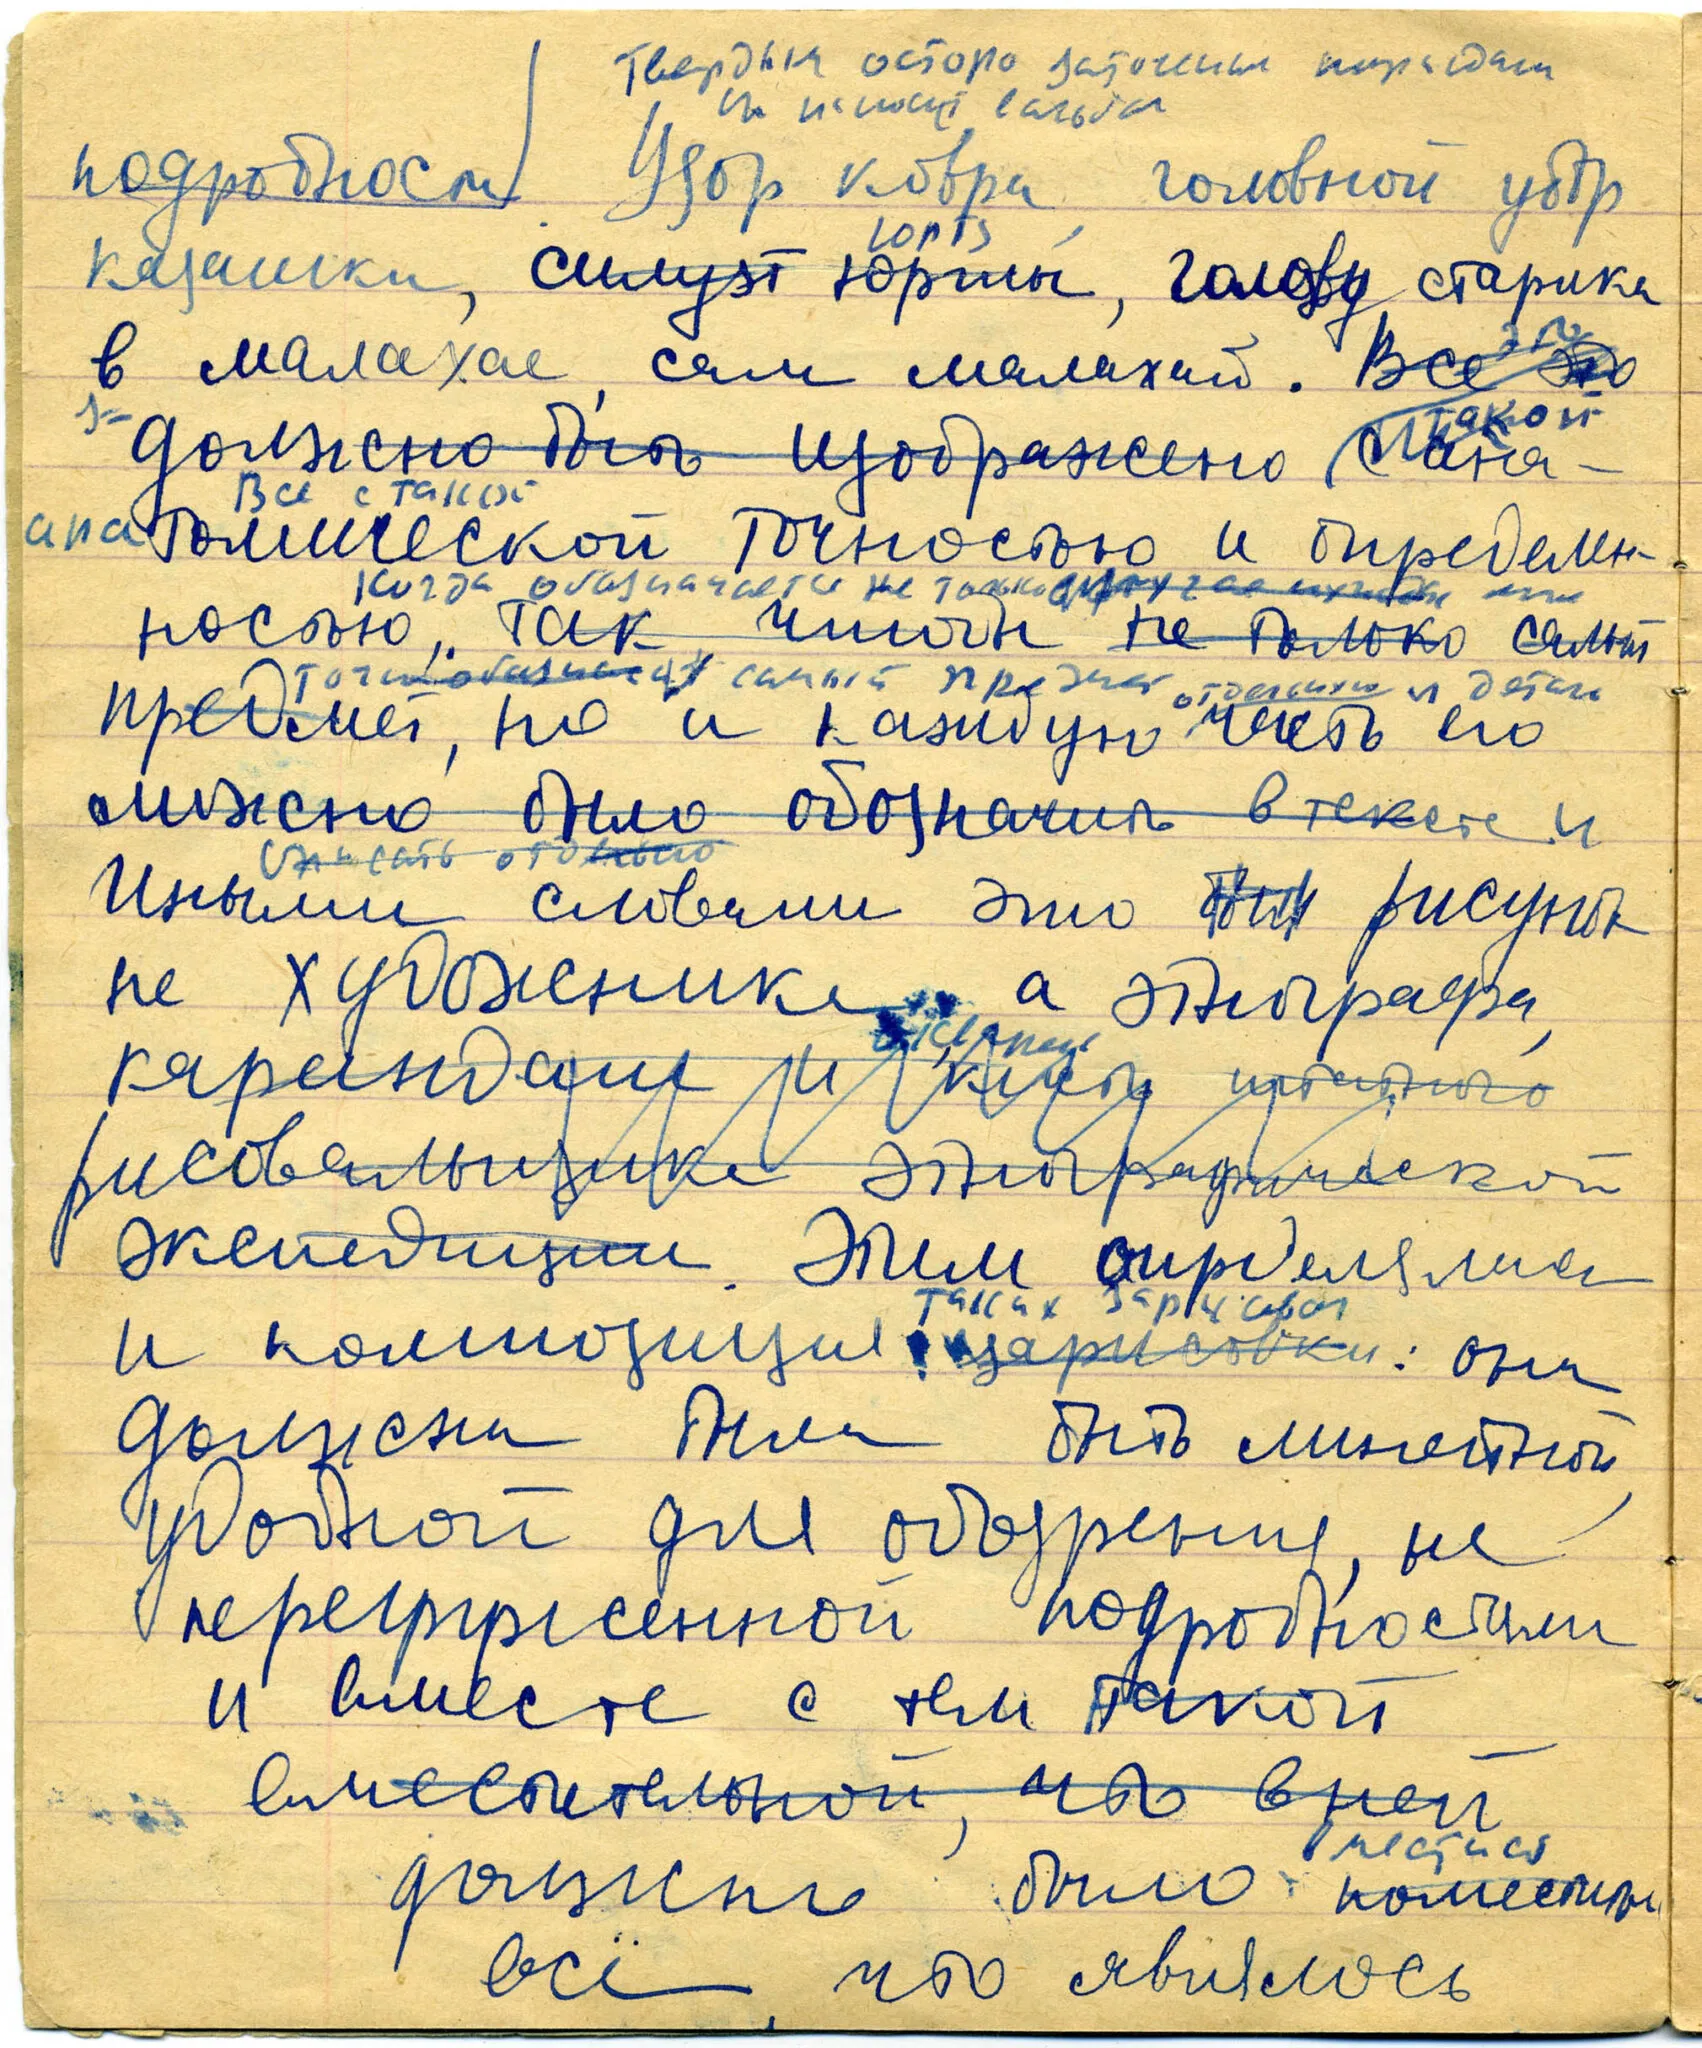 Твердым остро заточенным карандашом
подробности Узор ковра, головной убор
юрта
казашки, силуэт юрты, голову старика
в малахае, сам малахай. Все это
это
такой
должно быть изображено с ана-
Все с такой
ана томической точностью и определен-
Когда обозначается не только
ностью, так чтобы не только самый
точно обозначая самый предмет отдельно и детали
предмет, но и каждую часть его
можно было обозначить в тексте и
описать отдельно
Иными словами это был рисунок
не художника, а этнографа,
карандаш и кисть штатного
рисовальщика этнографической
экспедиции. Этим определялась
таких зарисовок
и композиция зарисовки: она
должна была быть
удобной для обозрения, не
перегруженной подробностями
и вместе с тем такой
вместительной, что в ней
вместиться
должно было поместиться
всё, что являлось